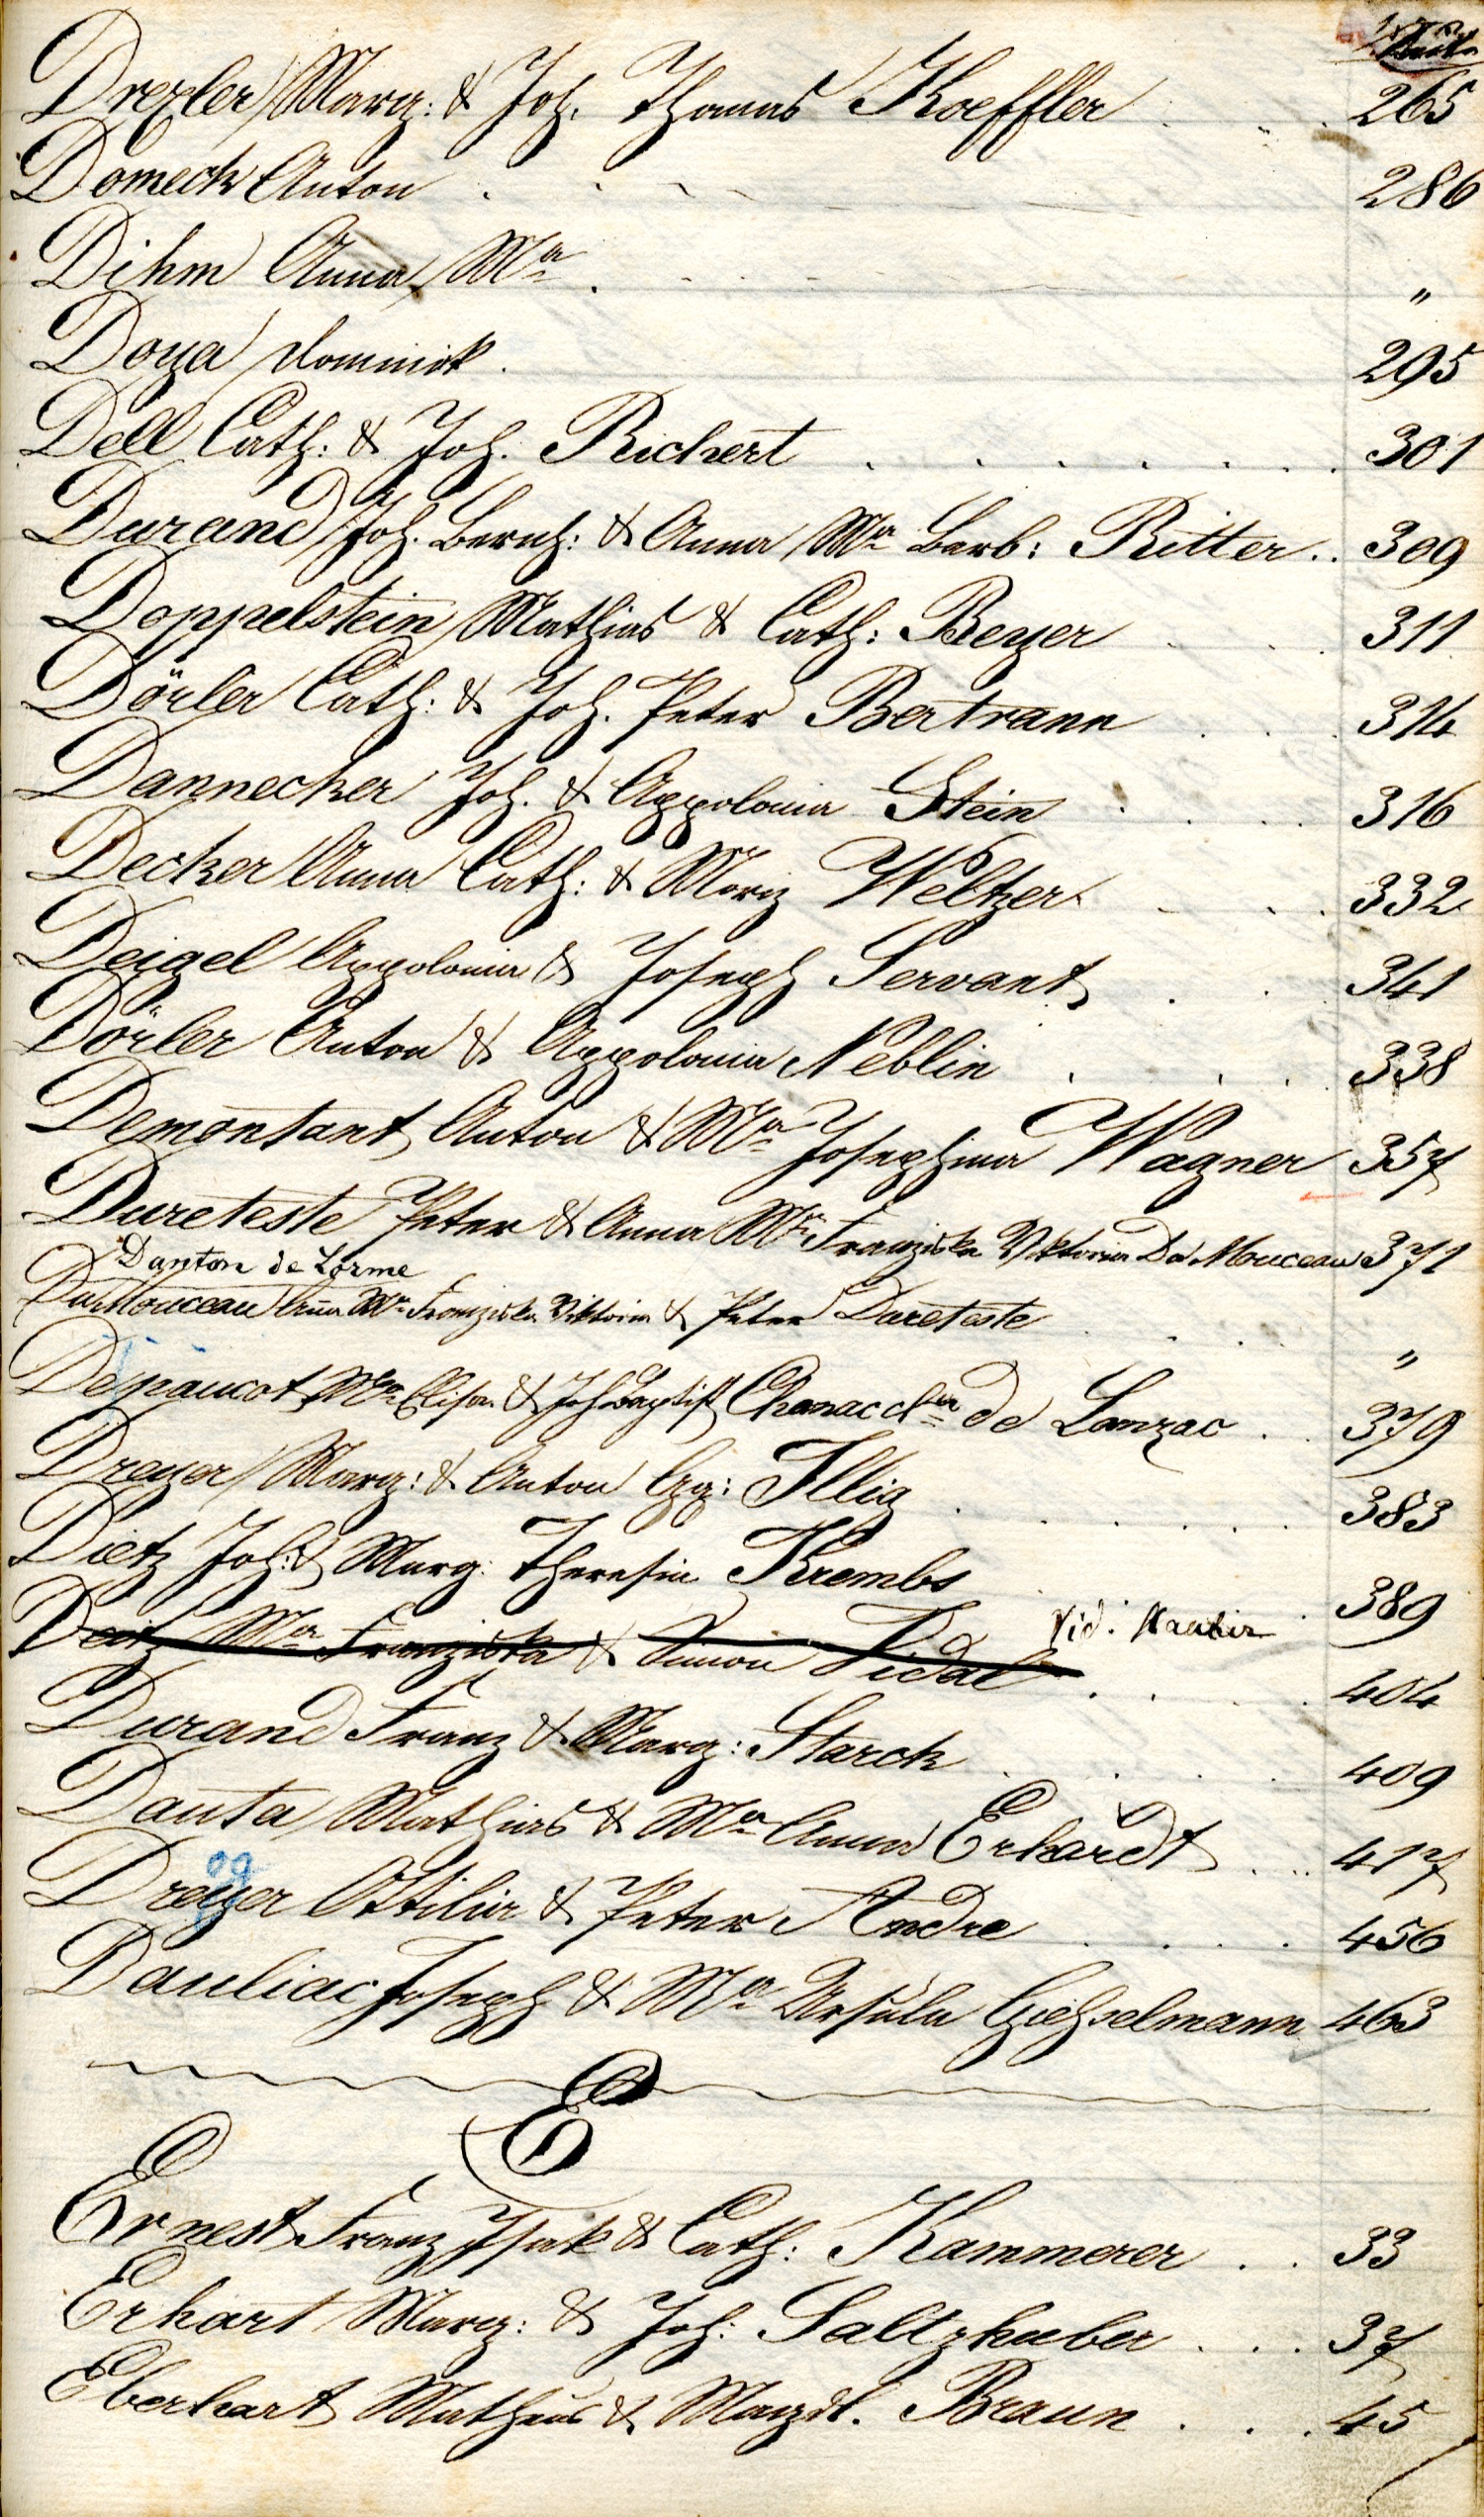 Seite
Drexler Marg: & Joh. Thomas Koeffler . . . 265
Domeck Anton . . 286
Dihm Anna Ma . . . "
Doya Dominik . 295
Dell Cath: & Joh. Richert . . . . . . . 301
Durand Joh. Bernh: & Anna Ma Barb: Ritter . . 309
Doppelstein Mathias & Cath: Beyer . . . 311
Dörler Cath: & Joh. Peter Bertrann . . . 314
Dannecker Joh. & Appolonia Stein . . . . 316
Decker Anna Cath: & Moriz Weltzer . . . 332
Deigel Appolonia & Joseph Servant . . . 341
Dörler Anton & Appolonia Neblin . . . . 338
Demontant Anton & Ma Josephina Wagner 357
Dureteste Peter & Anna Ma Franziska Viktoria Du Mouceau 371
Danton de Lorme
Du Mouceau Ana Ma Franziska Viktoria & Peter Dureteste . . . "
Depaucot Ma Elisa. & Joh Baptist Chanac de Lanzac . . 379
Dreyer Marg: & Anton Gg: Illig . . . . . . 383
Dietz Joh: & Marg: Theresia Krembs . . 389
Deitz Ma Franziska & Simon Vidal Vid: . . . 404
Durand Franz & Marg: Starck . . . . 409
Dauta Mathias & Ma Anna Erhardt . . . 417
Dreyer Ottilia & Peter Andre . . . . 456
Dauliac Joseph & Ma Ursula Giehselmann 463
E
Ernest Franz Isak & Cath: Kammerer . . 33
Erhart Marg: & Joh: Saltzhuber . . . 37
Eberhart Matheus & Magdl. Braun . . . 45